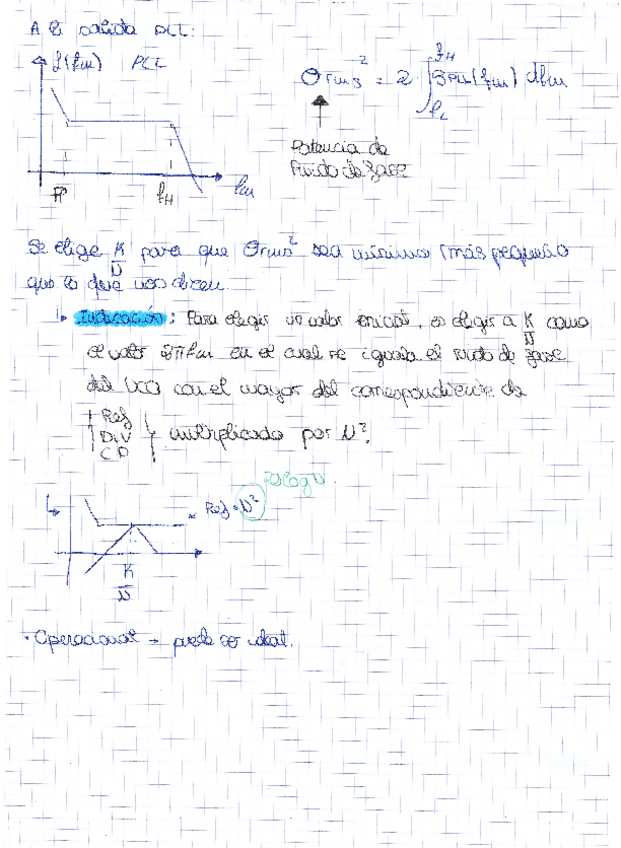 A la salida PLL:
L(fm) PLL
θrms² = 2 · ∫ SPLL(fm) dfm
fH
fL
Potencia de
Ruido de fase
fH
fm
Se elige K/N para que θrms² sea mínimo (más pequeño
que lo que nos dicen
↳ Indicación: Para elegir un valor inicial, es elegir a K/N como
el valor 2πfm en el cual se iguala el ruido de fase
del VCO con el mayor del correspondiente de
Ref
DIV
CP
multiplicado por N².
20logN
Ref · N²
K/N
· Operacional → puede ser ideal.